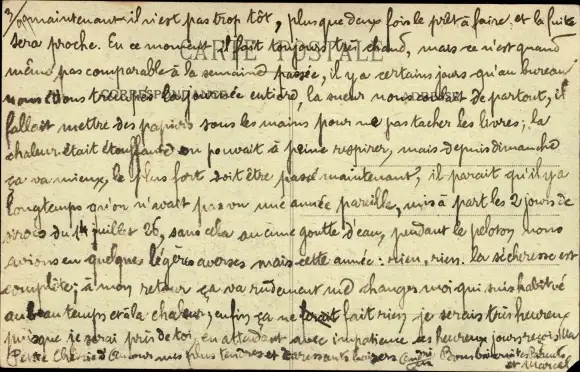 3/ maintenant il n'est pas trop tôt, plus que deux fois le prêt à faire et la fuite
sera proche. En ce moment il fait toujours très chaud, mais ce n'est quand
CARTE POSTALE
même pas comparable à la semaine passée, il y a certains jours qu'au bureau
CORRESPONDANCE ADRESSE
nous étions trempés la journée entière, la sueur nous coulait de partout, il
fallait mettre des papiers sous les mains pour ne pas tacher les livres; la
chaleur était étouffante on pouvait à peine respirer, mais depuis dimanche
ça va mieux, le plus fort doit être passé maintenant, il paraît qu'il y a
longtemps qu'on n'avait pas vu une année pareille, mis à part les 2 jours de
siroco du 14 juillet 26, sans cela aucune goutte d'eau, pendant le peloton nous
avions eu quelques légères averses mais cette année: rien, rien. la sécheresse est
complète; à mon retour ça va rudement me changer moi qui suis habitué
au beau temps et à la chaleur, enfin ça ne fait rien, je serais très heureux
puisque je serai près de toi, en attendant avec impatience ces heureux jours reçois Ma
Petite Chérie d'Amour mes plus tendres et caressants baisers André
Bons baisers aux Parents
et Marcel